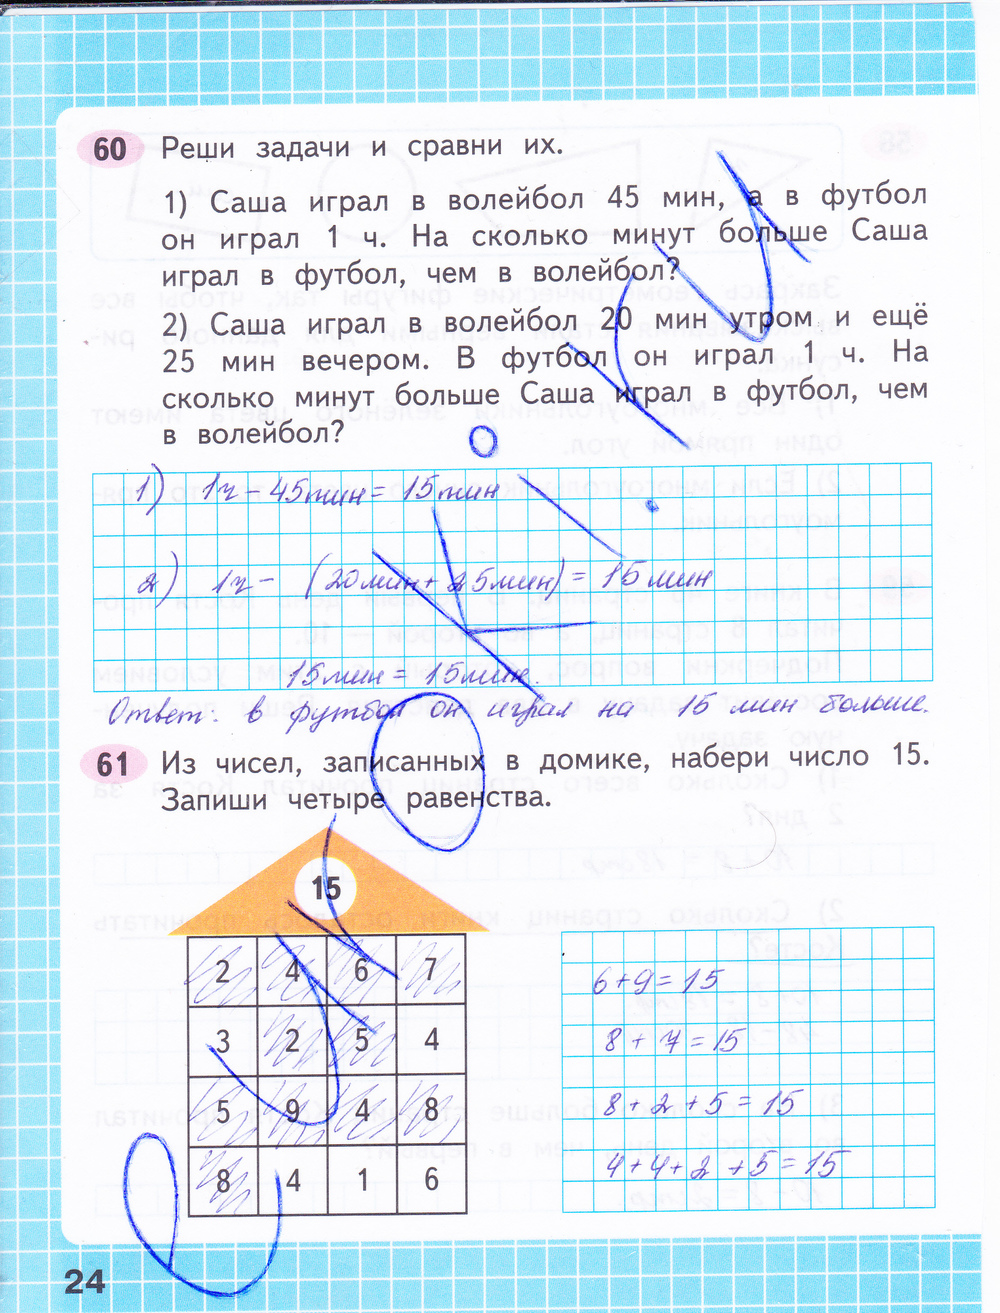 60 Реши задачи и сравни их.
1) Саша играл в волейбол 45 мин, а в футбол
он играл 1 ч. На сколько минут больше Саша
играл в футбол, чем в волейбол?
2) Саша играл в волейбол 20 мин утром и ещё
25 мин вечером. В футбол он играл 1 ч. На
сколько минут больше Саша играл в футбол, чем
в волейбол?
1) 1ч - 45мин = 15мин
2) 1ч - (20мин + 25мин) = 15 мин
15мин = 15мин.
Ответ: в футбол он играл на 15 мин больше.
61 Из чисел, записанных в домике, набери число 15.
Запиши четыре равенства.
15
2 4 6 7
3 2 5 4
5 9 4 8
8 4 1 6
6+9=15
8+7=15
8+2+5=15
4+4+2+5=15
24